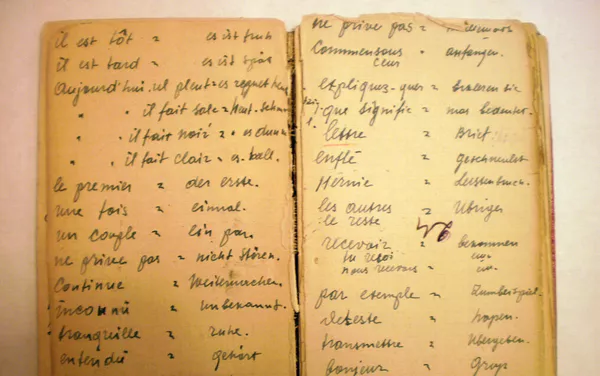 il est tôt = es ist früh
il est tard = es ist spät
aujourd'hui, il pleut = es regnet
" " il fait sale =
" " il fait noir = "
" " il fait clair = es hell.
le premier = der erste.
une fois = einmal.
un couple = ein par.
ne prive pas = nicht stören.
Continue = Weitermachen.
inconnu = unbekannt.
tranquille = ruhe.
entendu = gehört
ne prive pas =
Commensons = anfangen.
expliquez-
que signifie = was bedeutet.
lettre = Brief
enflé = geschwulst.
Hernie = Leistenbruch.
les autres = Übriges
le reste
recevoir = bekommen
tu reçoi
nous recevons =
par exemple = Zumbeispiel.
deteste =
transmettre = Übergeben.
bonjour =